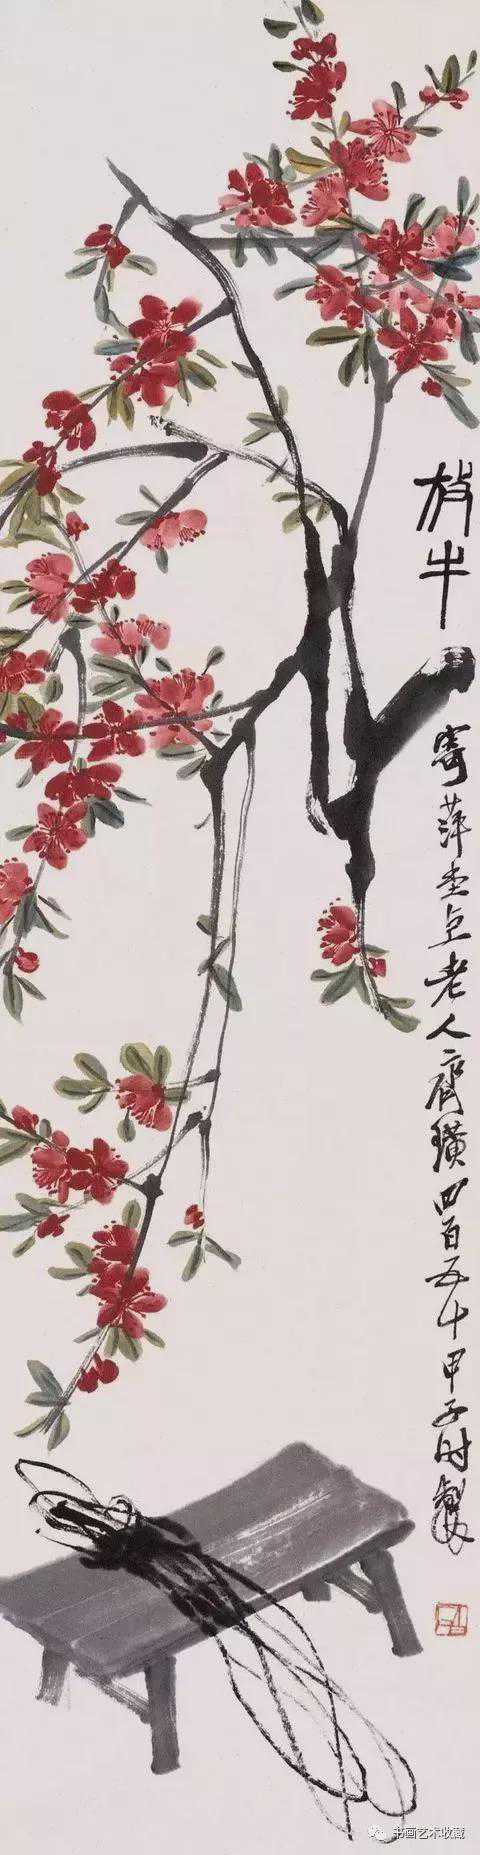 放牛
寄萍堂上老人齊璜四百五十甲子时製
书画艺术收藏